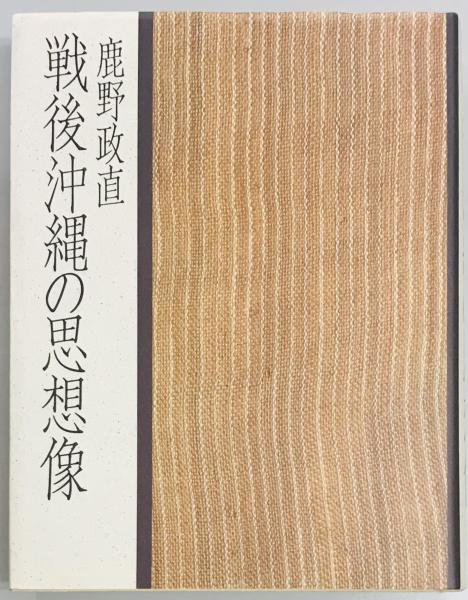 鹿野政直
戦後沖縄の思想像